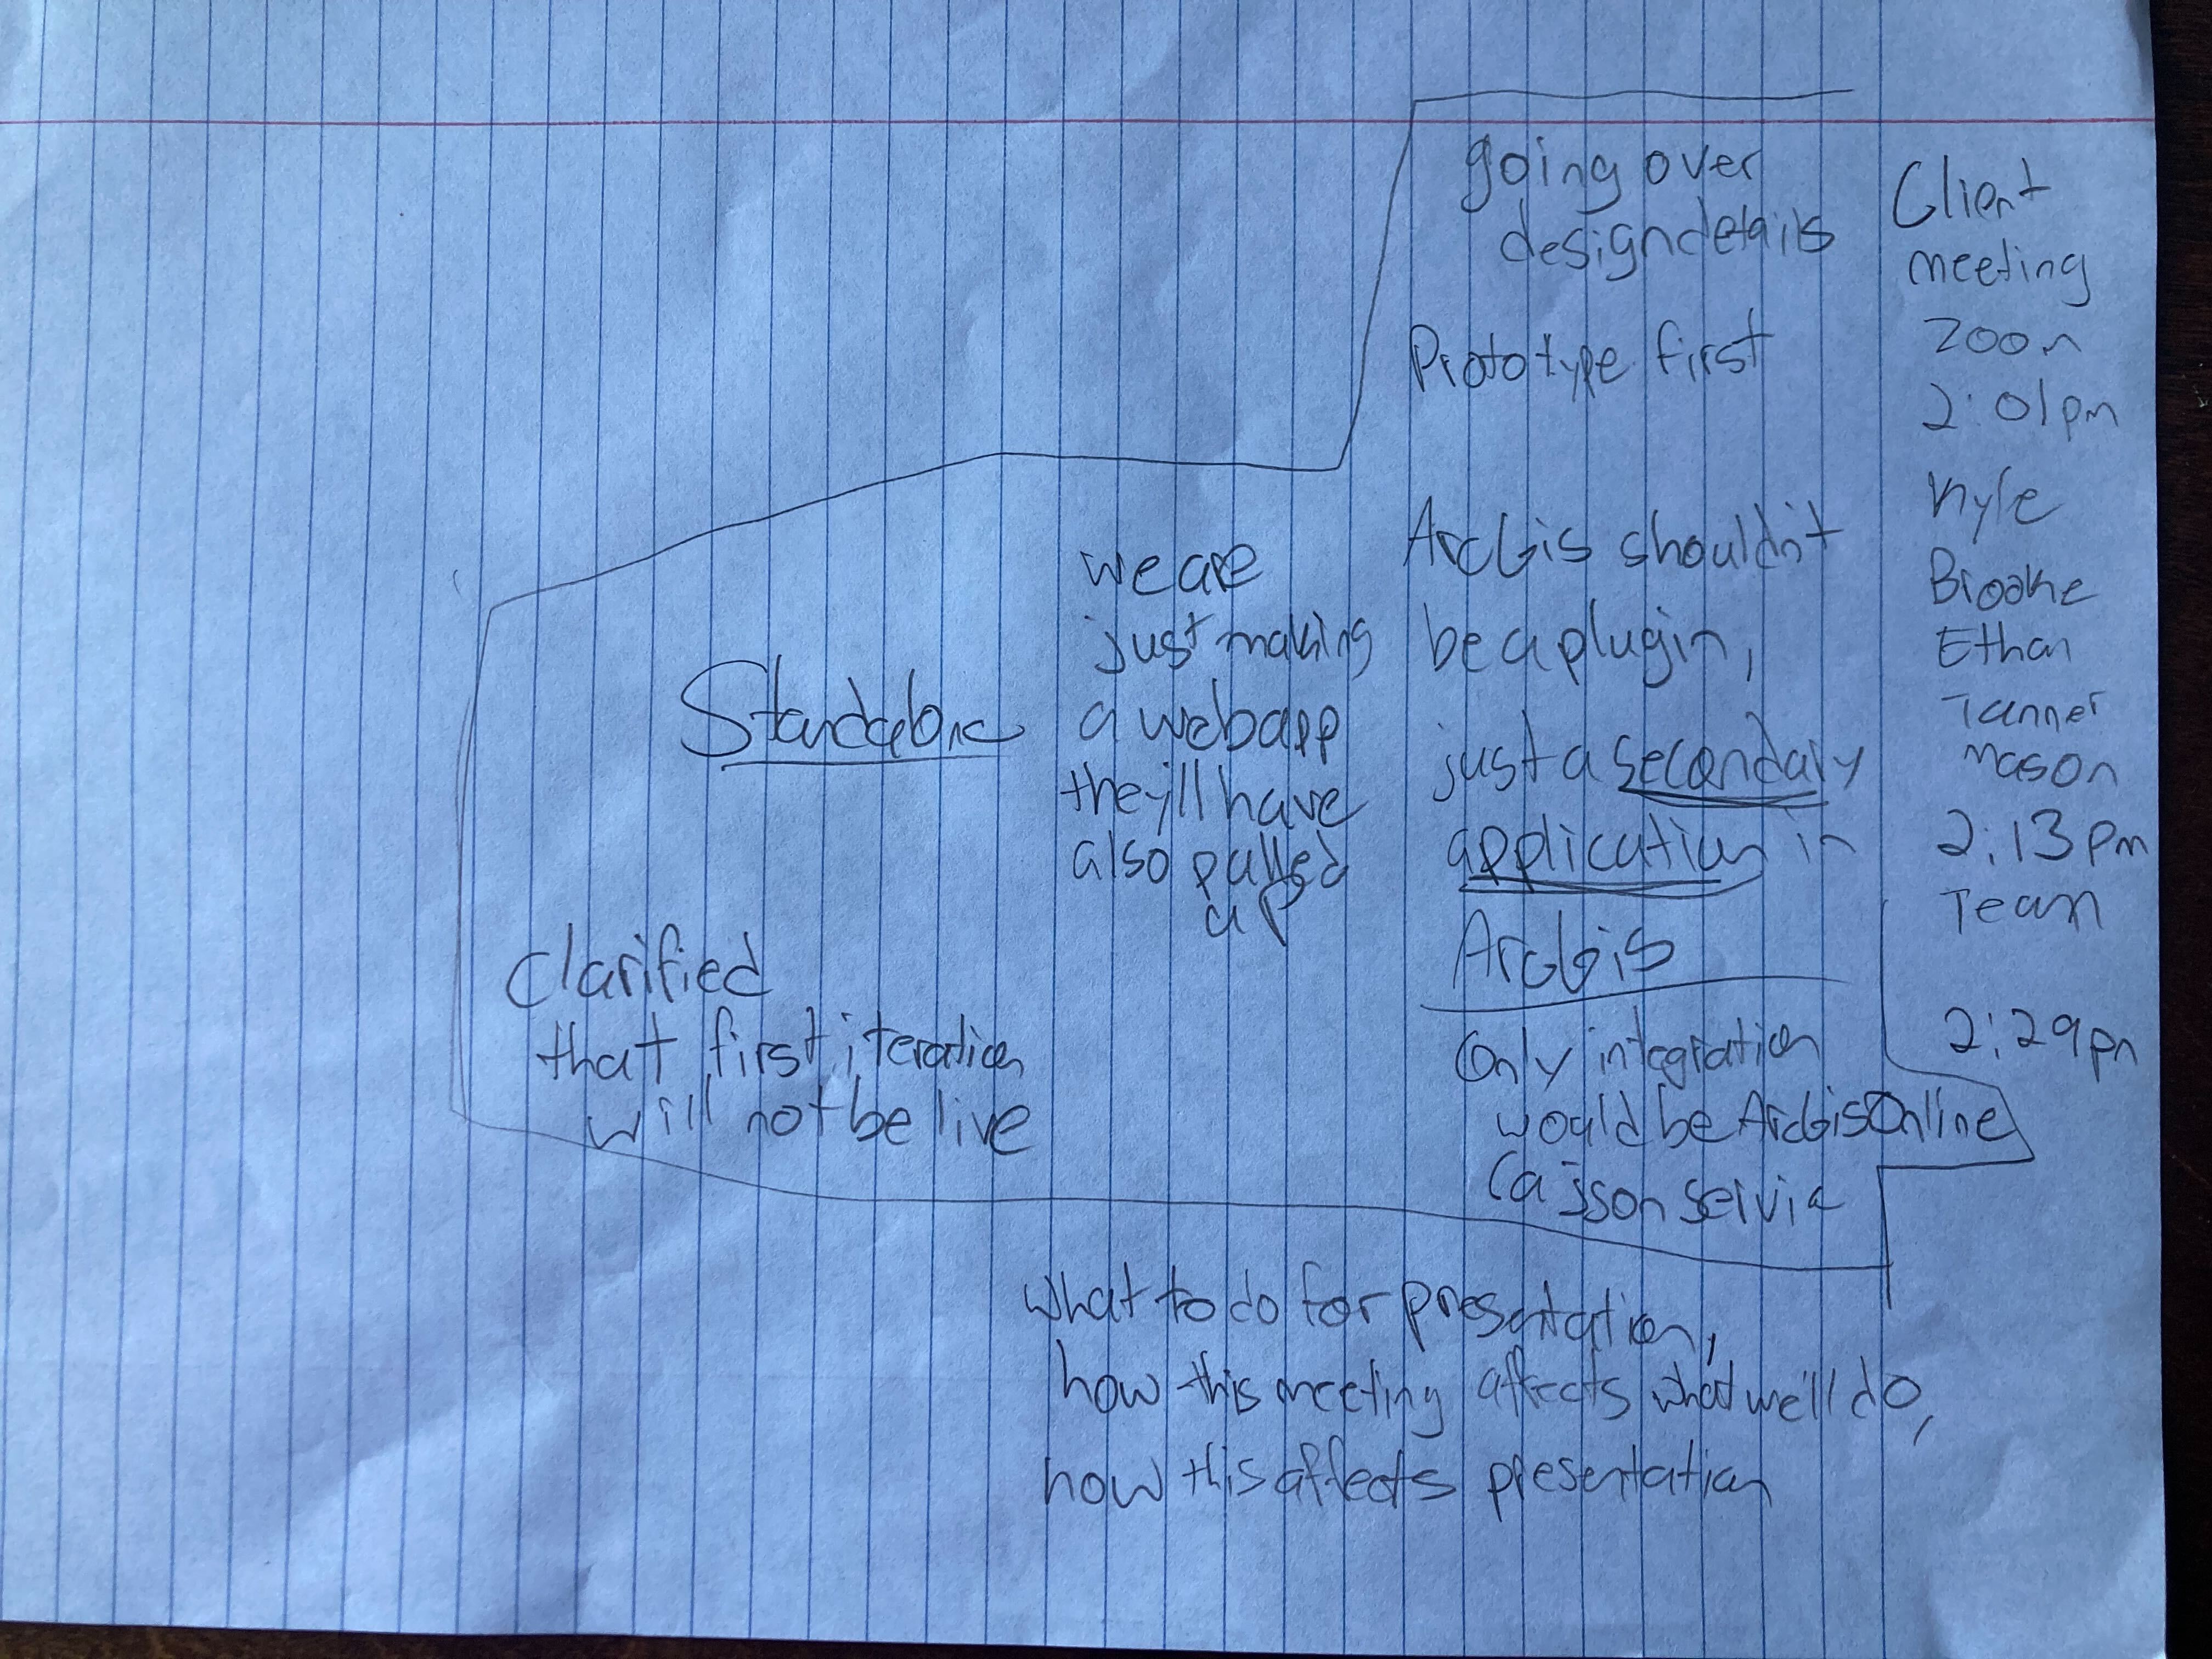 Client
meeting
Zoom
2:01pm
Kyle
Brooke
Ethan
Tanner
Mason
2:13pm
Team
2:29pm
going over
design details
Prototype first
ArcGis shouldn't
be a plugin,
just a secondary
application in
ArcGis
Only integration
would be ArcGis Online
(a json servic
we are
just making
a webapp
they'll have
also pulled
up
Standalone
Clarified
that first iteration
will not be live
what to do for presentation,
how this meeting affects what we'll do,
how this affects presentation